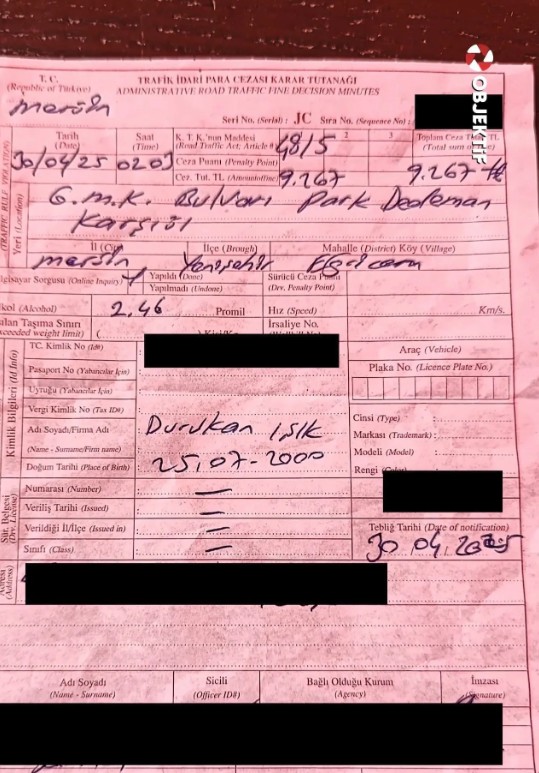 OBJEKTİF
T. C.
(Republic of Türkiye)
TRAFİK İDARİ PARA CEZASI KARAR TUTANAĞI
ADMINISTRATIVE ROAD TRAFFIC FINE DECISION MINUTES
mersin
Seri No. (Serial) : JC Sıra No. (Sequence No) :
(TRAFFIC RULE VIOLATION)
Tarih
(Date)
Saat
(Time)
K. T. K.'nun Maddesi
(Road Traffic Act; Article#)
48/5
2
3
Toplam Ceza TL
(Total sum
30/04/25
Ceza Puanı (Penalty Point)
Cez. Tut. TL (Amountoffine)
9.267
9.267 TL
Yeri (Location)
G.M.K. Bulvarı Park Dedeman
Karşısı
İl (City)
İlçe (Brough)
Mahalle (District) Köy (Village)
mersin Yenişehir
lgisayar Sorgusu (Online Inquiry)
Yapıldı (Done)
Yapılmadı (Undone)
Sürücü Ceza Puanı
(Drv. Penalty Point)
kol (Alcohol)
2.46
Promil
Hız (Speed)
Km/s.
ılan Taşıma Sınırı
xceeded weight limit)
İrsaliye No.
Kimlik Bilgileri (Id Info)
TC. Kimlik No (Id#)
Araç (Vehicle)
Pasaport No (Yabancılar İçin)
Plaka No. (Licence Plate No.)
Uyruğu (Yabancılar İçin)
Vergi Kimlik No (Tax ID#)
Adı Soyadı/Firma Adı
(Name - Surname/Firm name)
Durukan IŞIK
Cinsi (Type) :
Markası (Trademark) :
Doğum Tarihi (Place of Birth)
25.07-2000
Modeli (Model) :
Rengi
Sür. Belgesi
(Drv. License)
Numarası (Number)
Veriliş Tarihi (Issued)
Verildiği İl/İlçe (Issued in)
Tebliğ Tarihi (Date of notification)
Sınıfı (Class)
30.04.2025
Adresi
(Address)
Adı Soyadı
(Name - Surname)
Sicili
(Officer ID#)
Bağlı Olduğu Kurum
(Agency)
İmzası
(Signature)